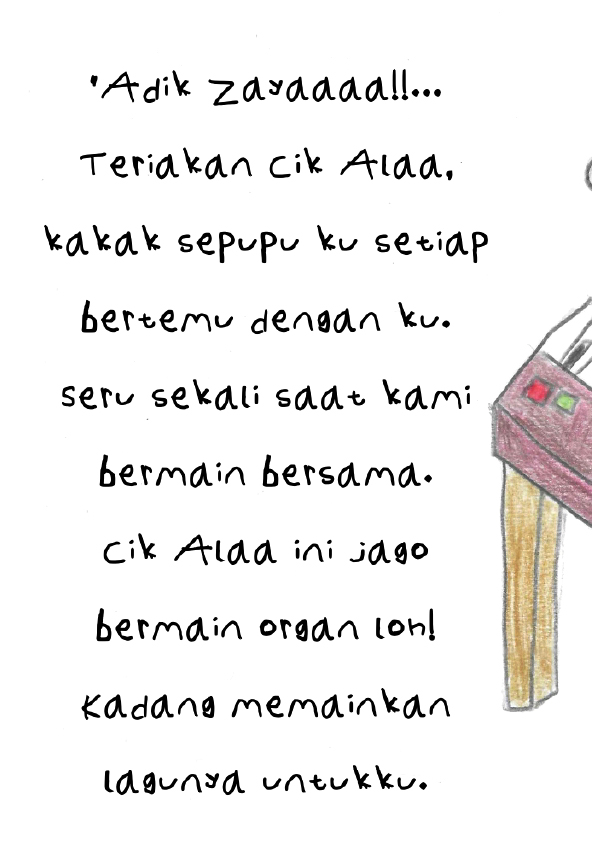 'Adik Zayaaaa!!...
Teriakan Cik Alaa,
kakak sepupu ku setiap
bertemu dengan ku.
seru sekali saat kami
bermain bersama.
Cik Alaa ini jago
bermain organ loh!
Kadang memainkan
lagunya untukku.